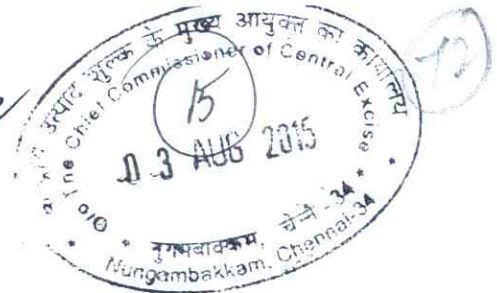 उत्पाद शुल्क के मुख्य आयुक्त का कार्यालय
O/o The Chief Commissioner of Central Excise
15
03 AUG 2015
नुगमबाक्कम, चेन्नै - 34
Nungambakkam, Chennai-34